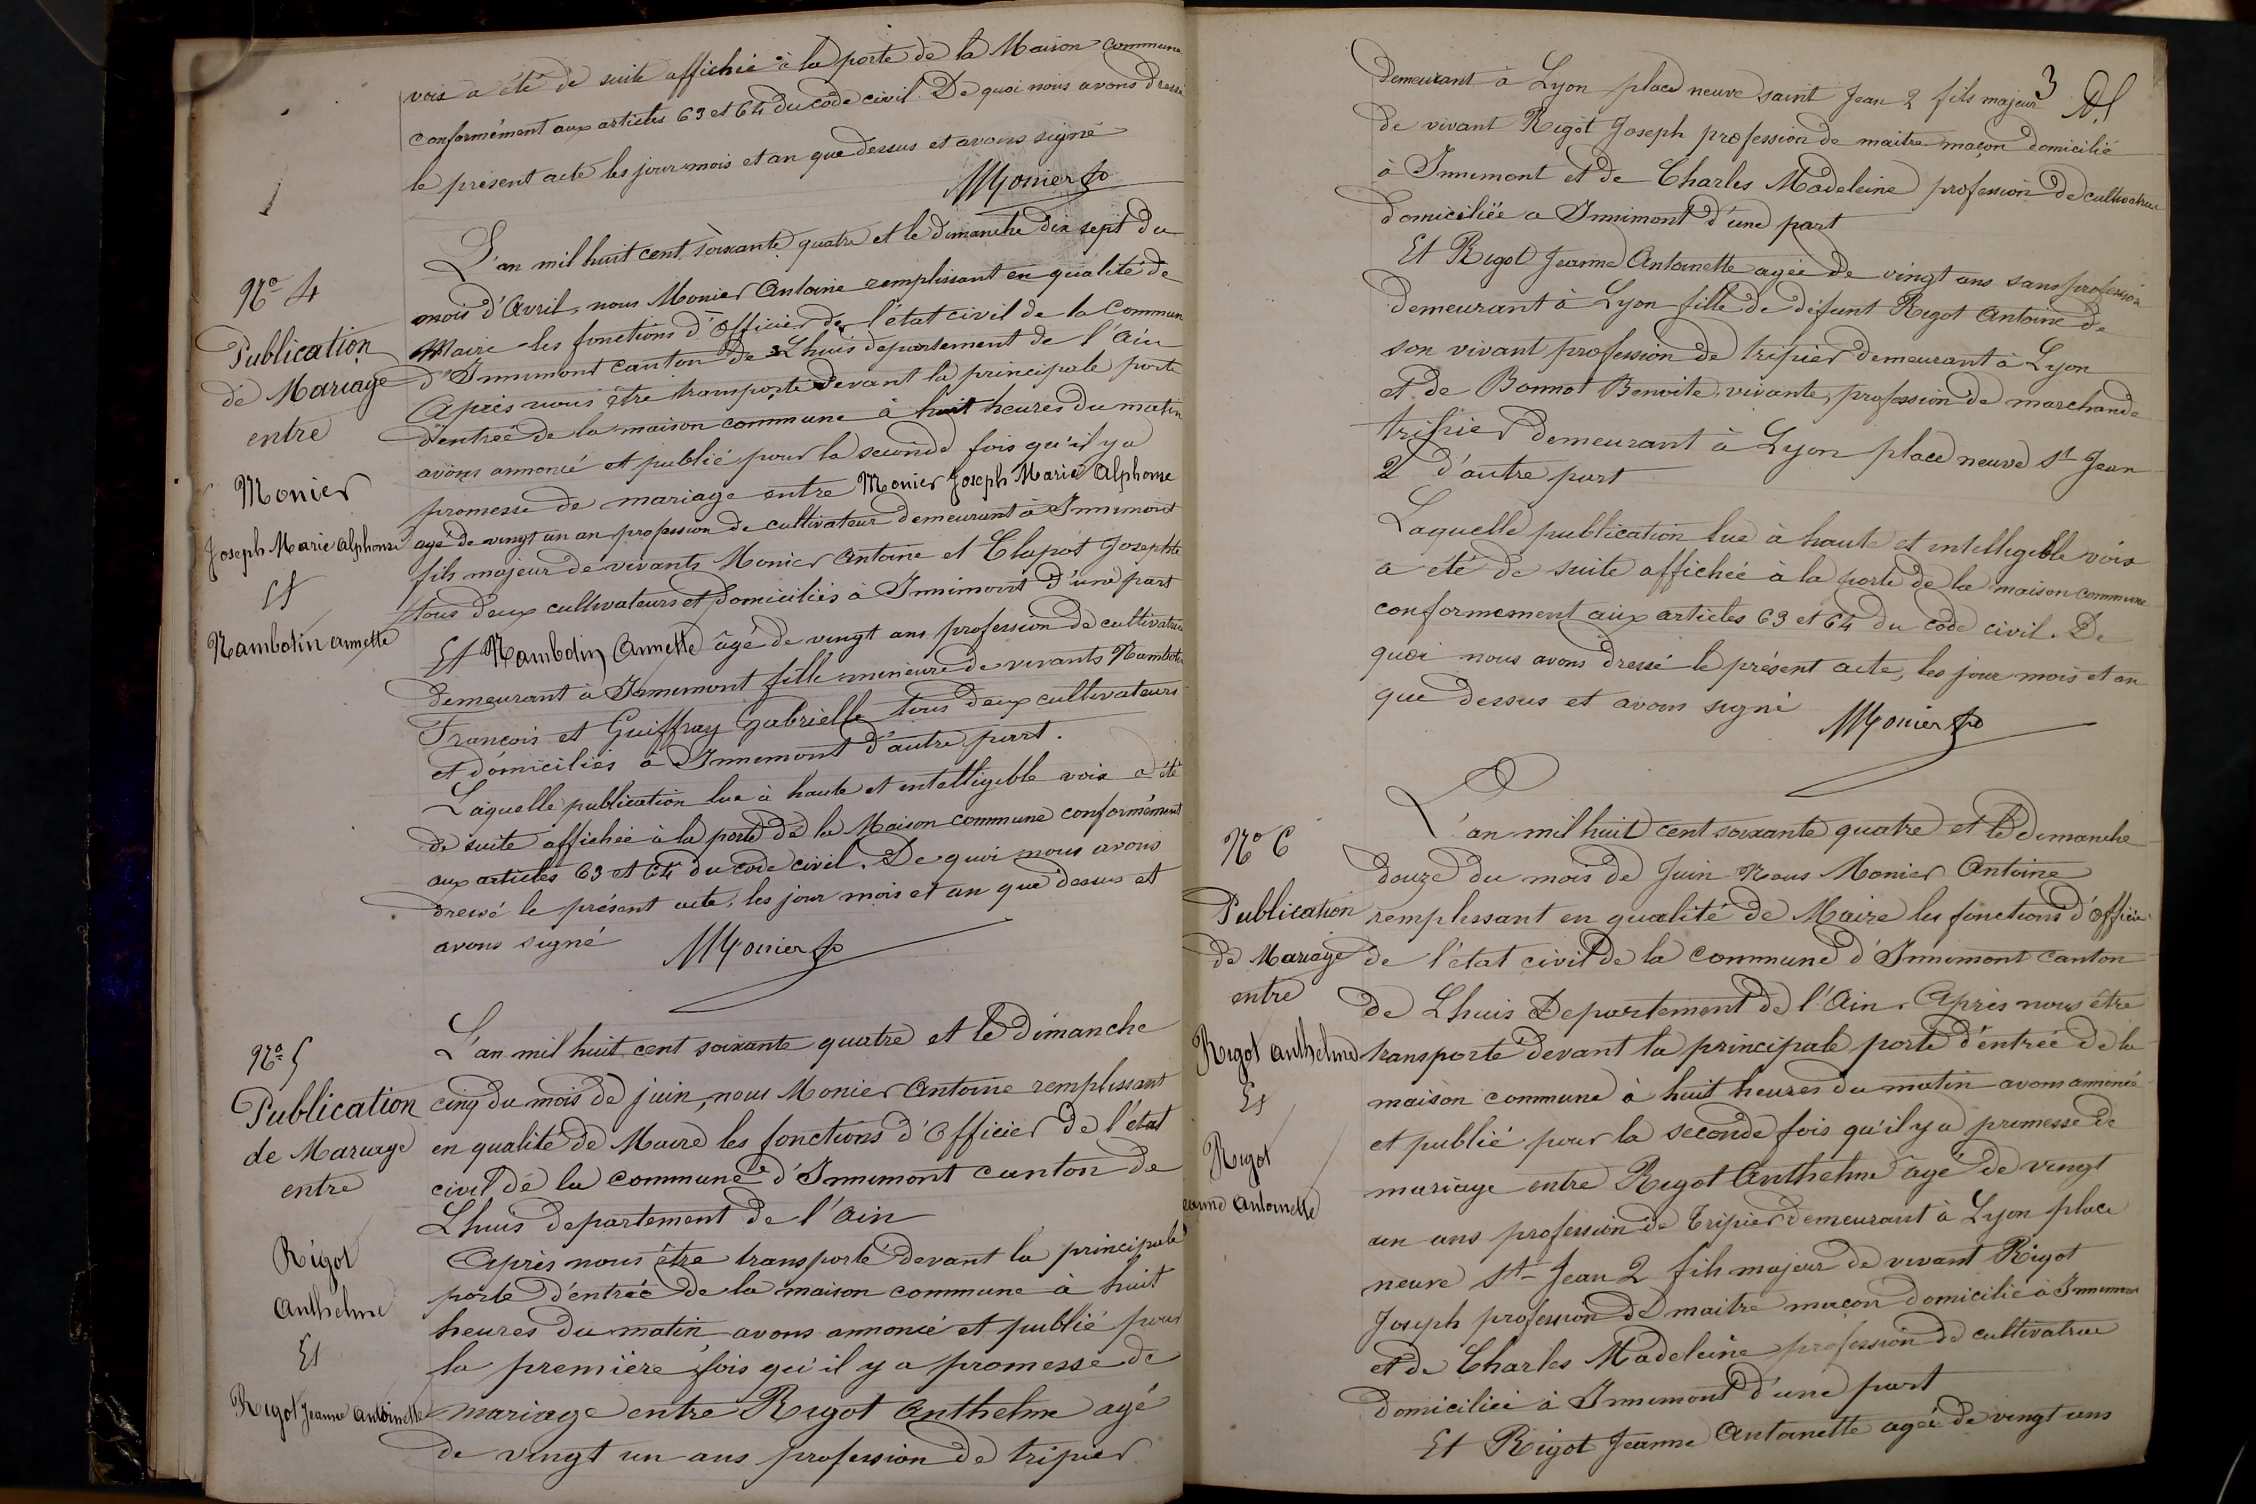 voix a été de suite affichée à la porte de la Maison commune
conformément aux articles 63 et 64 du code civil. De quoi nous avons dressé
le présent acte les jour mois et an que dessus et avons signé
Monier
N° 4
Publication
de Mariage
entre
Monier
Joseph Marie Alphonse
Et
Nambotin Annette
L'an mil huit cent soixante quatre et le dimanche dix sept du
mois d'Avril, nous Monier Antoine remplissant en qualité de
Maire les fonctions d'Officier de l'état civil de la Commun
d'Innimont canton de Lhuis departement de l'Ain
Après nous être transporté devant la principale porte
d'entrée de la maison commune à huit heures du matin
avons annoncé et publié pour la seconde fois qu'il y a
promesse de mariage entre Monier Joseph Marie Alphonse
agé de vingt un an profession de cultivateur demeurant à Innimont
fils majeur de vivants Monier Antoine et Clapot Josephte
tous deux cultivateurs et domiciliés à Innimont d'une part
Et Nambotin Annette âgé de vingt ans profession de cultivatrice
demeurant à Innimont fille mineure de vivants Nambotin
François et Guiffray Gabrielle tous deux cultivateurs
et domiciliés à Innimont d'autre part.
Laquelle publication lue à haute et intelligible voix a été
de suite affichée à la porte de la Maison commune conformément
aux articles 63 et 64 du code civil. De quoi nous avons
dressé le présent acte, les jour mois et an que dessus et
avons signé Monier
N° 5
Publication
de Mariage
entre
Rigot
Anthelme
Et
Rigot Jeanne Antoinette
L'an mil huit cent soixante quatre et le dimanche
cinq du mois de juin, nous Monier Antoine remplissant
en qualité de Maire les fonctions d'Officier de l'état
civil de la commune d'Innimont canton de
Lhuis departement de l'Ain
Après nous être transporté devant la principale
porte d'entrée de la maison commune à huit
heures du matin avons annoncé et publié pour
la première fois qu'il y a promesse de
mariage entre Rigot Anthelme agé
de vingt un ans profession de tripier
3
demeurant à Lyon place neuve saint Jean 2 fils majeur
de vivant Rigot Joseph profession de maitre maçon domicilié
à Innimont et de Charles Madeleine profession de cultivatrice
domiciliée a Innimont d'une part
Et Rigot Jeanne Antoinette agée de vingt ans sans profession
demeurant à Lyon fille de défunt Rigot Antoine de
son vivant profession de tripier demeurant à Lyon
et de Bonnot Benoite, vivante, profession de marchande
tripier demeurant à Lyon place neuve St Jean
2 d'autre part
Laquelle publication lue à haute et intelligible voix
a été de suite affichée à la porte de la maison commune
conformement aux articles 63 et 64 du code civil. De
quoi nous avons dressé le présent acte, les jour mois et an
que dessus et avons signé Monier
N° 6
Publication
de Mariage
entre
Rigot Anthelme
Et
Rigot
Jeanne Antoinette
L'an mil huit cent soixante quatre et le dimanche
douze du mois de Juin Nous Monier Antoine
remplissant en qualité de Maire les fonctions d'Officier
de l'état civil de la commune d'Innimont canton
de Lhuis Departement de l'Ain. Après nous être
transporté devant la principale porte d'entrée de la
maison commune à huit heures du matin avons annoncé
et publié pour la seconde fois qu'il y a promesse de
mariage entre Rigot Anthelme agé de vingt
un ans profession de Tripier demeurant à Lyon place
neuve St Jean 2 fils majeur de vivant Rigot
Joseph profession de maitre maçon domicilié à Innimont
et de Charles Madeleine profession de cultivatrice
domiciliée à Innimont d'une part
Et Rigot Jeanne Antoinette agée de vingt ans